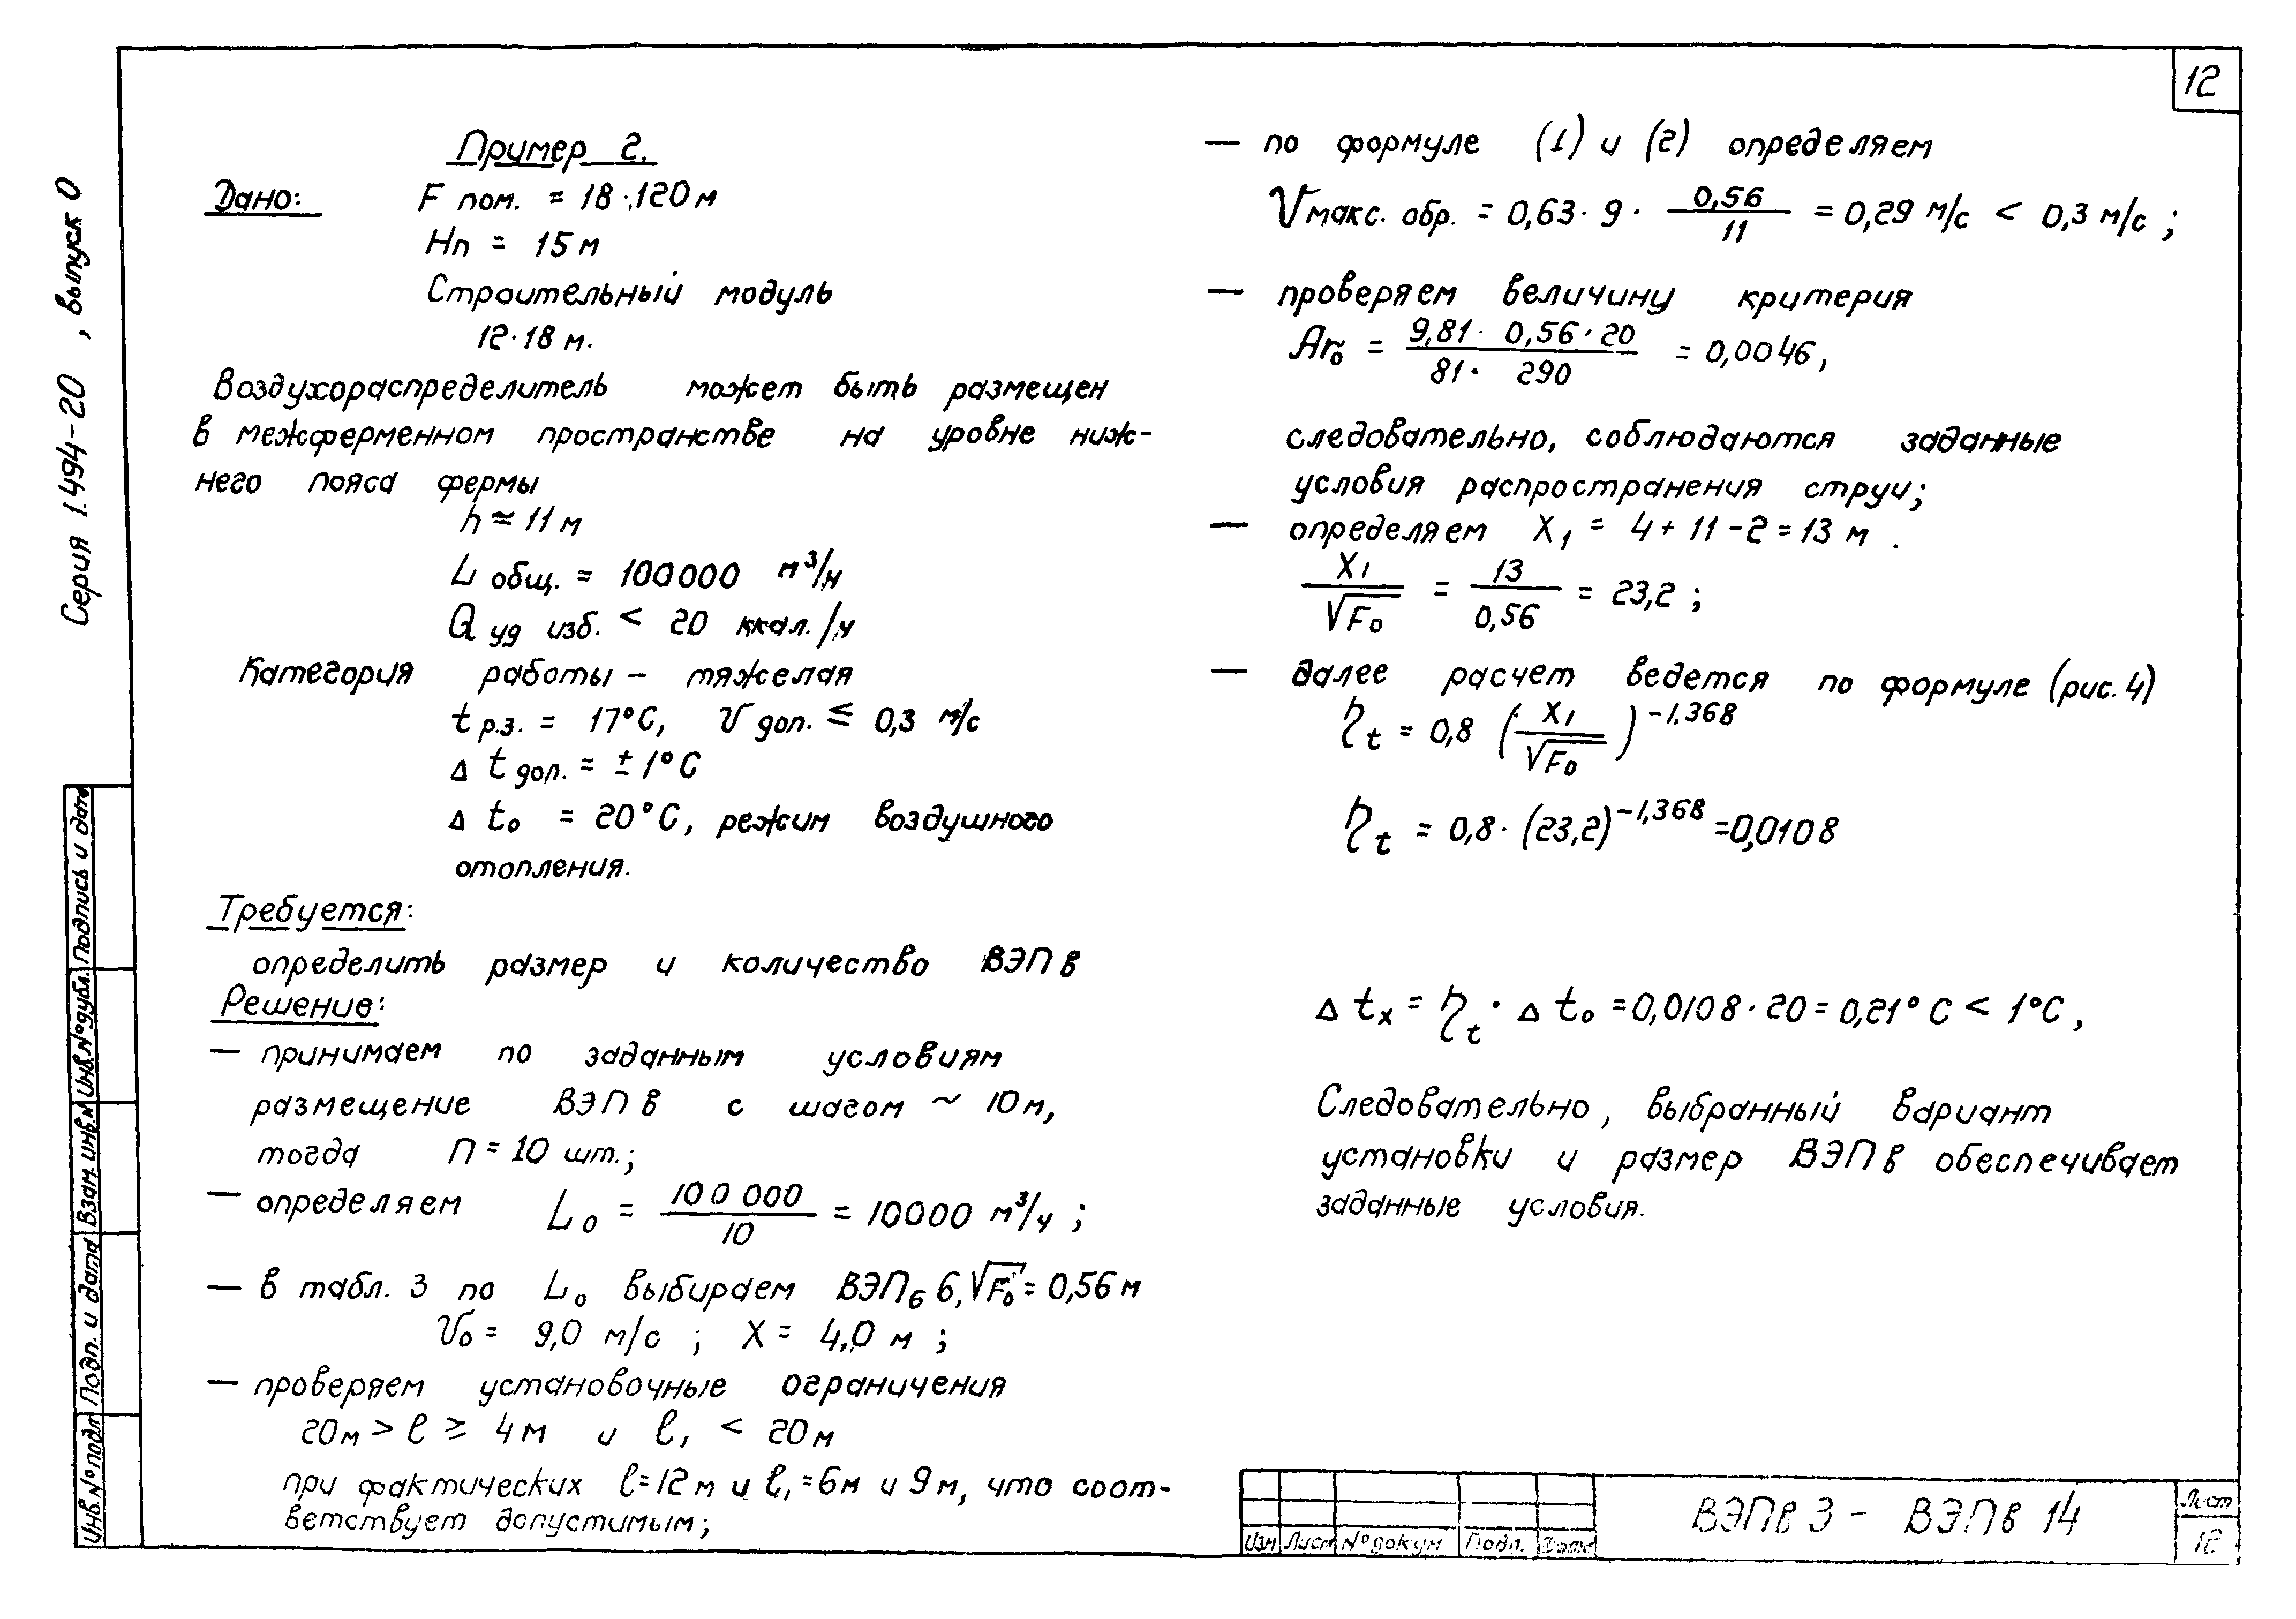 12
Серия 1.494-20 , выпуск 0
Пример 2.
Дано: F пом. = 18·120 м
Hп = 15 м
Строительный модуль
12·18 м.
Воздухораспределитель может быть размещен
в межферменном пространстве на уровне ниж-
него пояса фермы
h ≃ 11 м
L общ. = 100000 м³/ч
Q уд изб. < 20 ккал./ч
Категория работы – тяжелая
t р.з. = 17°C, v доп. ≤ 0,3 м/с
Δ t доп. = ± 1°C
Δ t₀ = 20°C, режим воздушного
отопления.
Требуется:
определить размер и количество ВЭПв
Решение:
— принимаем по заданным условиям
размещение ВЭПв с шагом ~ 10 м,
тогда n = 10 шт.;
— определяем L₀ = 100 000 / 10 = 10000 м³/ч ;
— в табл. 3 по L₀ выбираем ВЭПв 6, √F₀ = 0,56 м
v₀ = 9,0 м/с ; X = 4,0 м ;
— проверяем установочные ограничения
20м > ℓ ≥ 4 м и ℓ₁ < 20 м
при фактических ℓ=12 м и ℓ₁=6м и 9 м, что соот-
ветствует допустимым;
— по формуле (1) и (2) определяем
V макс. обр. = 0,63 · 9 · 0,56 / 11 = 0,29 м/с < 0,3 м/с ;
— проверяем величину критерия
Ar₀ = 9,81 · 0,56 · 20 / 81 · 290 = 0,0046,
следовательно, соблюдаются заданные
условия распространения струи;
— определяем X₁ = 4 + 11 - 2 = 13 м .
X₁ / √F₀ = 13 / 0,56 = 23,2 ;
— далее расчет ведется по формуле (рис. 4)
η t = 0,8 (X₁ / √F₀)^-1,368
η t = 0,8 · (23,2)^-1,368 = 0,0108
Δ tₓ = η t · Δ t₀ = 0,0108 · 20 = 0,21°C < 1°C,
Следовательно, выбранный вариант
установки и размер ВЭПв обеспечивает
заданные условия.
Инв. № подл Подп. и дата Взам. инв. № Инв. № дубл. Подпись и дата
Изм Лист № докум Подп. Дата
ВЭПв 3 - ВЭПв 14
Лист
12